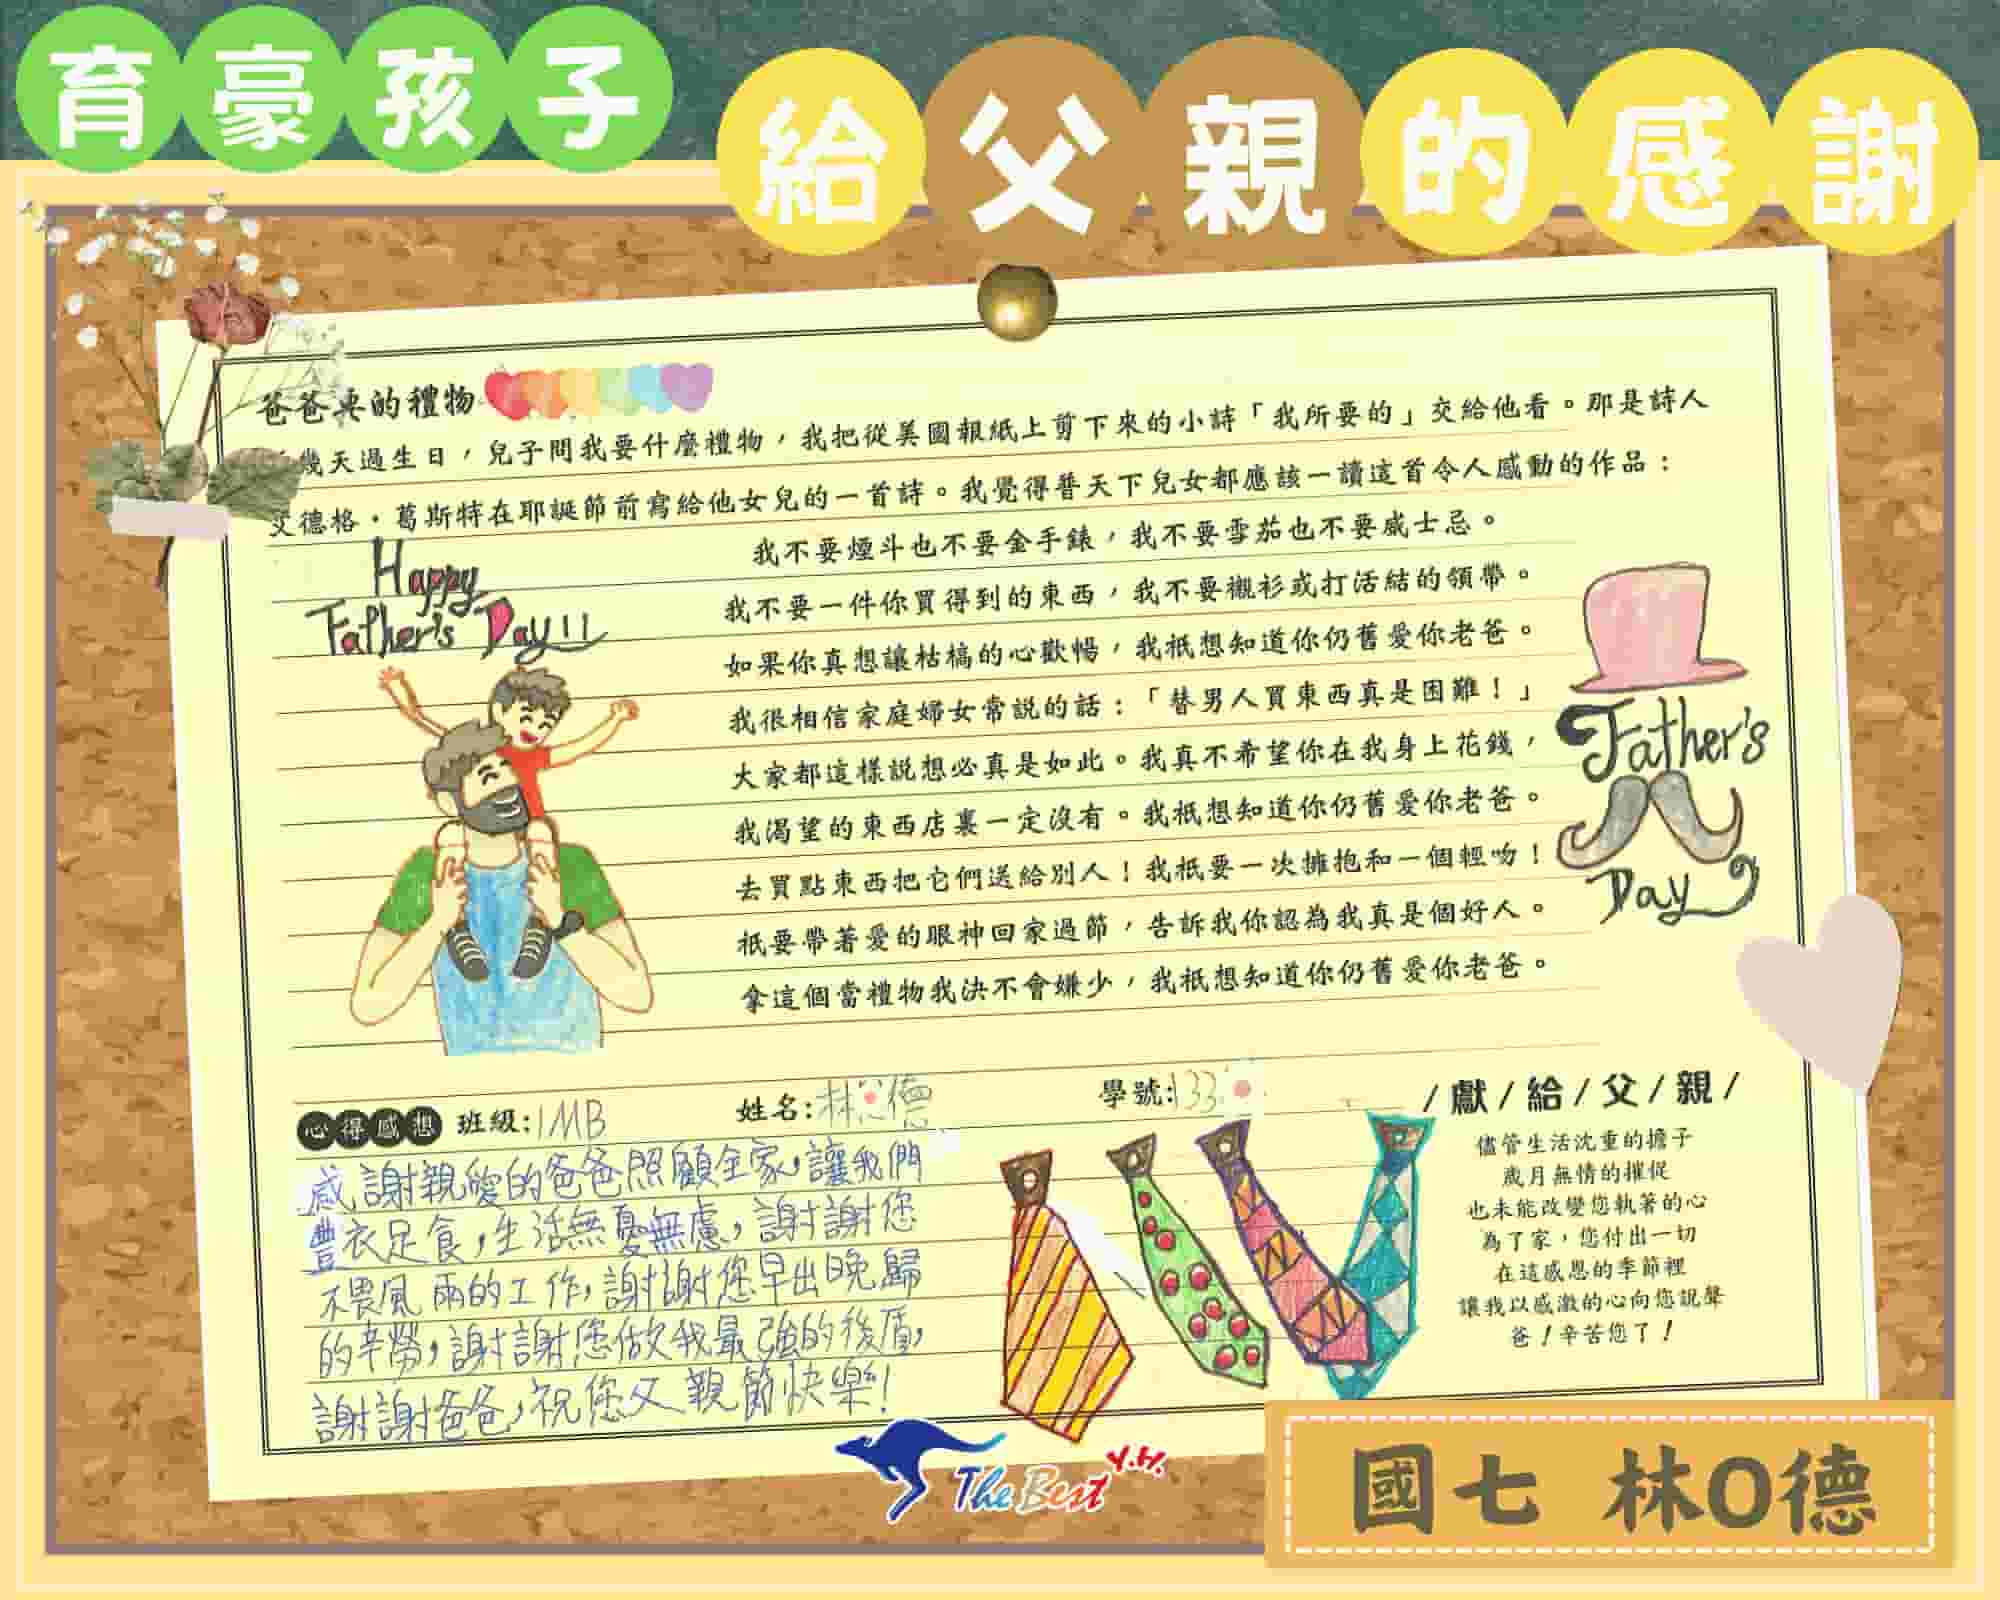 育豪孩子
給父親的感謝
爸爸要的禮物
幾天過生日,兒子問我要什麼禮物,我把從美國報紙上剪下來的小詩「我所要的」交給他看。那是詩人
艾德格.葛斯特在耶誕節前寫給他女兒的一首詩。我覺得普天下兒女都應該一讀這首令人感動的作品:
Happy
Father's Day!!
我不要煙斗也不要金手錶,我不要雪茄也不要威士忌。
我不要一件你買得到的東西,我不要襯衫或打活結的領帶。
如果你真想讓枯槁的心歡暢,我祇想知道你仍舊愛你老爸。
我很相信家庭婦女常說的話:「替男人買東西真是困難!」
大家都這樣說想必真是如此。我真不希望你在我身上花錢,
我渴望的東西店裏一定沒有。我祇想知道你仍舊愛你老爸。
去買點東西把它們送給別人!我祇要一次擁抱和一個輕吻!
祇要帶著愛的眼神回家過節,告訴我你認為我真是個好人。
拿這個當禮物我決不會嫌少,我祇想知道你仍舊愛你老爸。
Father's
Day
心得感想 班級:1MB 姓名:林 德 學號:133
感謝親愛的爸爸照顧全家,讓我們
豐衣足食,生活無憂無慮,謝謝您
不畏風雨的工作,謝謝您早出晚歸
的辛勞,謝謝您做我最強的後盾,
謝謝爸爸,祝您父親節快樂!
/獻/給/父/親/
儘管生活沈重的擔子
歲月無情的摧促
也未能改變您執著的心
為了家,您付出一切
在這感恩的季節裡
讓我以感激的心向您說聲
爸!辛苦您了!
The Best Y.H.
國七 林O德